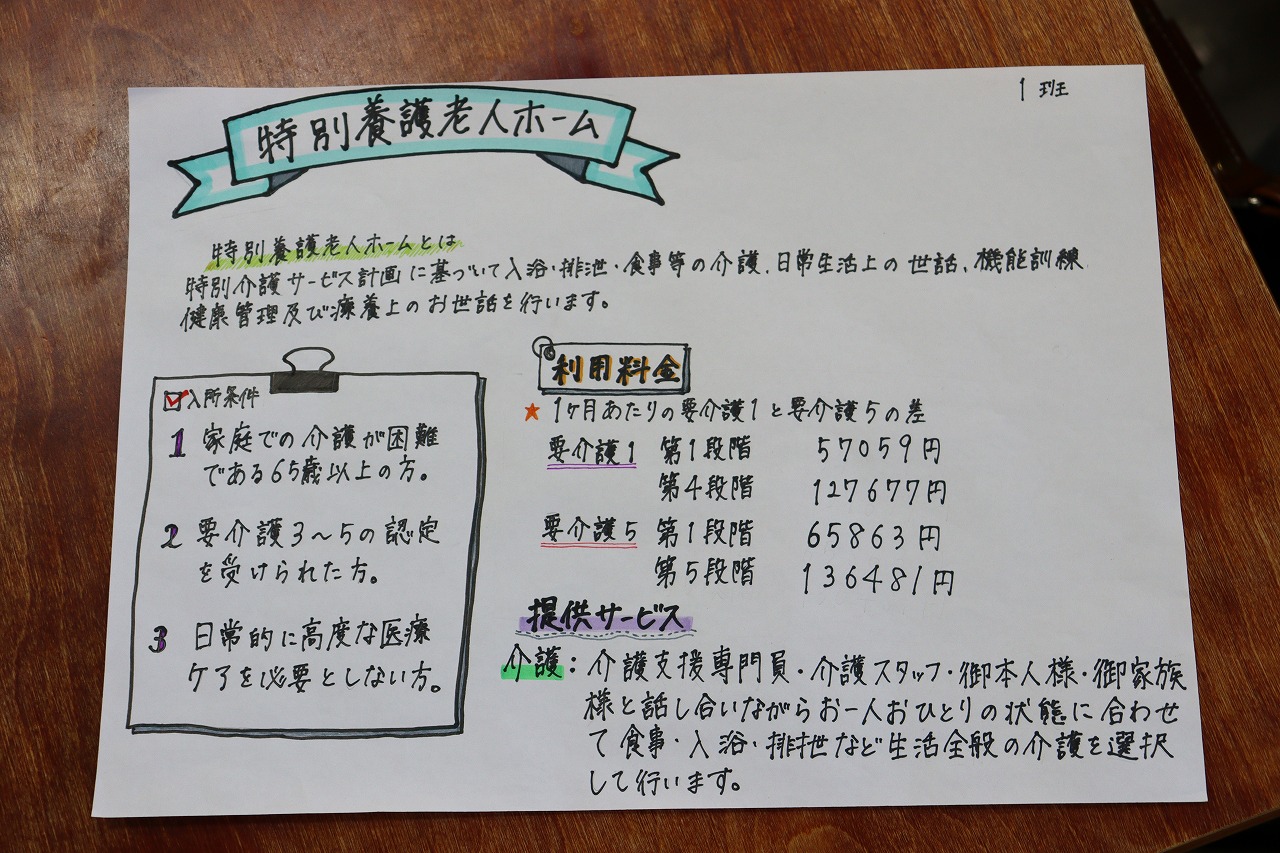 1班
特別養護老人ホーム
特別養護老人ホームとは
特別介護サービス計画に基づいて入浴・排泄・食事等の介護、日常生活上の世話、機能訓練
健康管理及び療養上のお世話を行います。
入所条件
1 家庭での介護が困難
である65歳以上の方。
2 要介護3～5の認定
を受けられた方。
3 日常的に高度な医療
ケアを必要としない方。
利用料金
★1ヶ月あたりの要介護1と要介護5の差
要介護1 第1段階 57059円
第4段階 127677円
要介護5 第1段階 65863円
第5段階 136481円
提供サービス
介護：介護支援専門員・介護スタッフ・御本人様・御家族
様と話し合いながらお一人おひとりの状態に合わせ
て食事・入浴・排泄など生活全般の介護を選択
して行います。